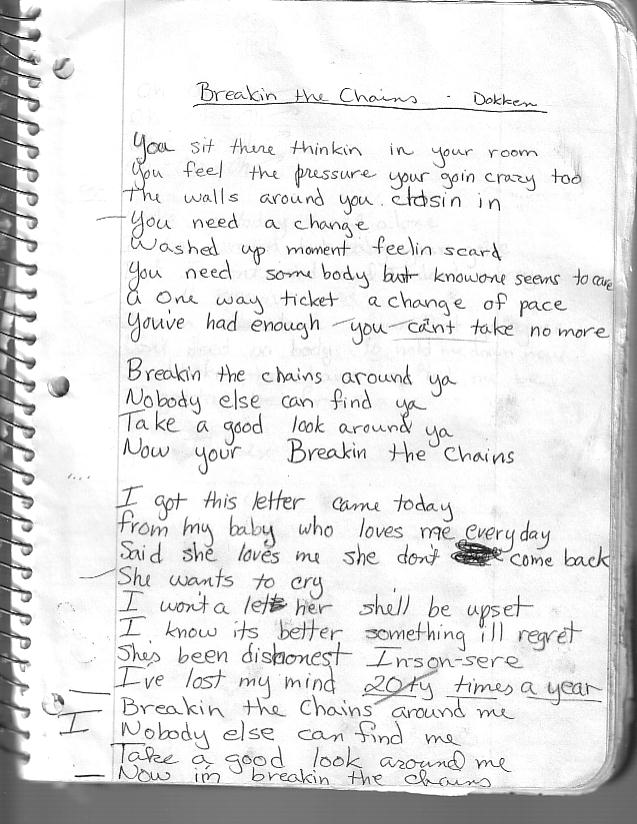 Breakin the Chains - Dokken
You sit there thinkin in your room
You feel the pressure your goin crazy too
the walls around you closin in
You need a change
Washed up moment feelin scard
You need some body but knowone seems to care
a one way ticket a change of pace
Youv've had enough you can't take no more
Breakin the chains around ya
Nobody else can find ya
Take a good look around ya
Now your Breakin the Chains
I got this letter came today
from my baby who loves me everyday
Said she loves me she don't come back
She wants to cry
I won't a let her she'll be upset
I know its better something i'll regret
She's been dishonest In-son-sere
I've lost my mind 20ty times a year
Breakin the Chains around me
I Nobody else can find me
Take a good look around me
Now i'm breakin the chains